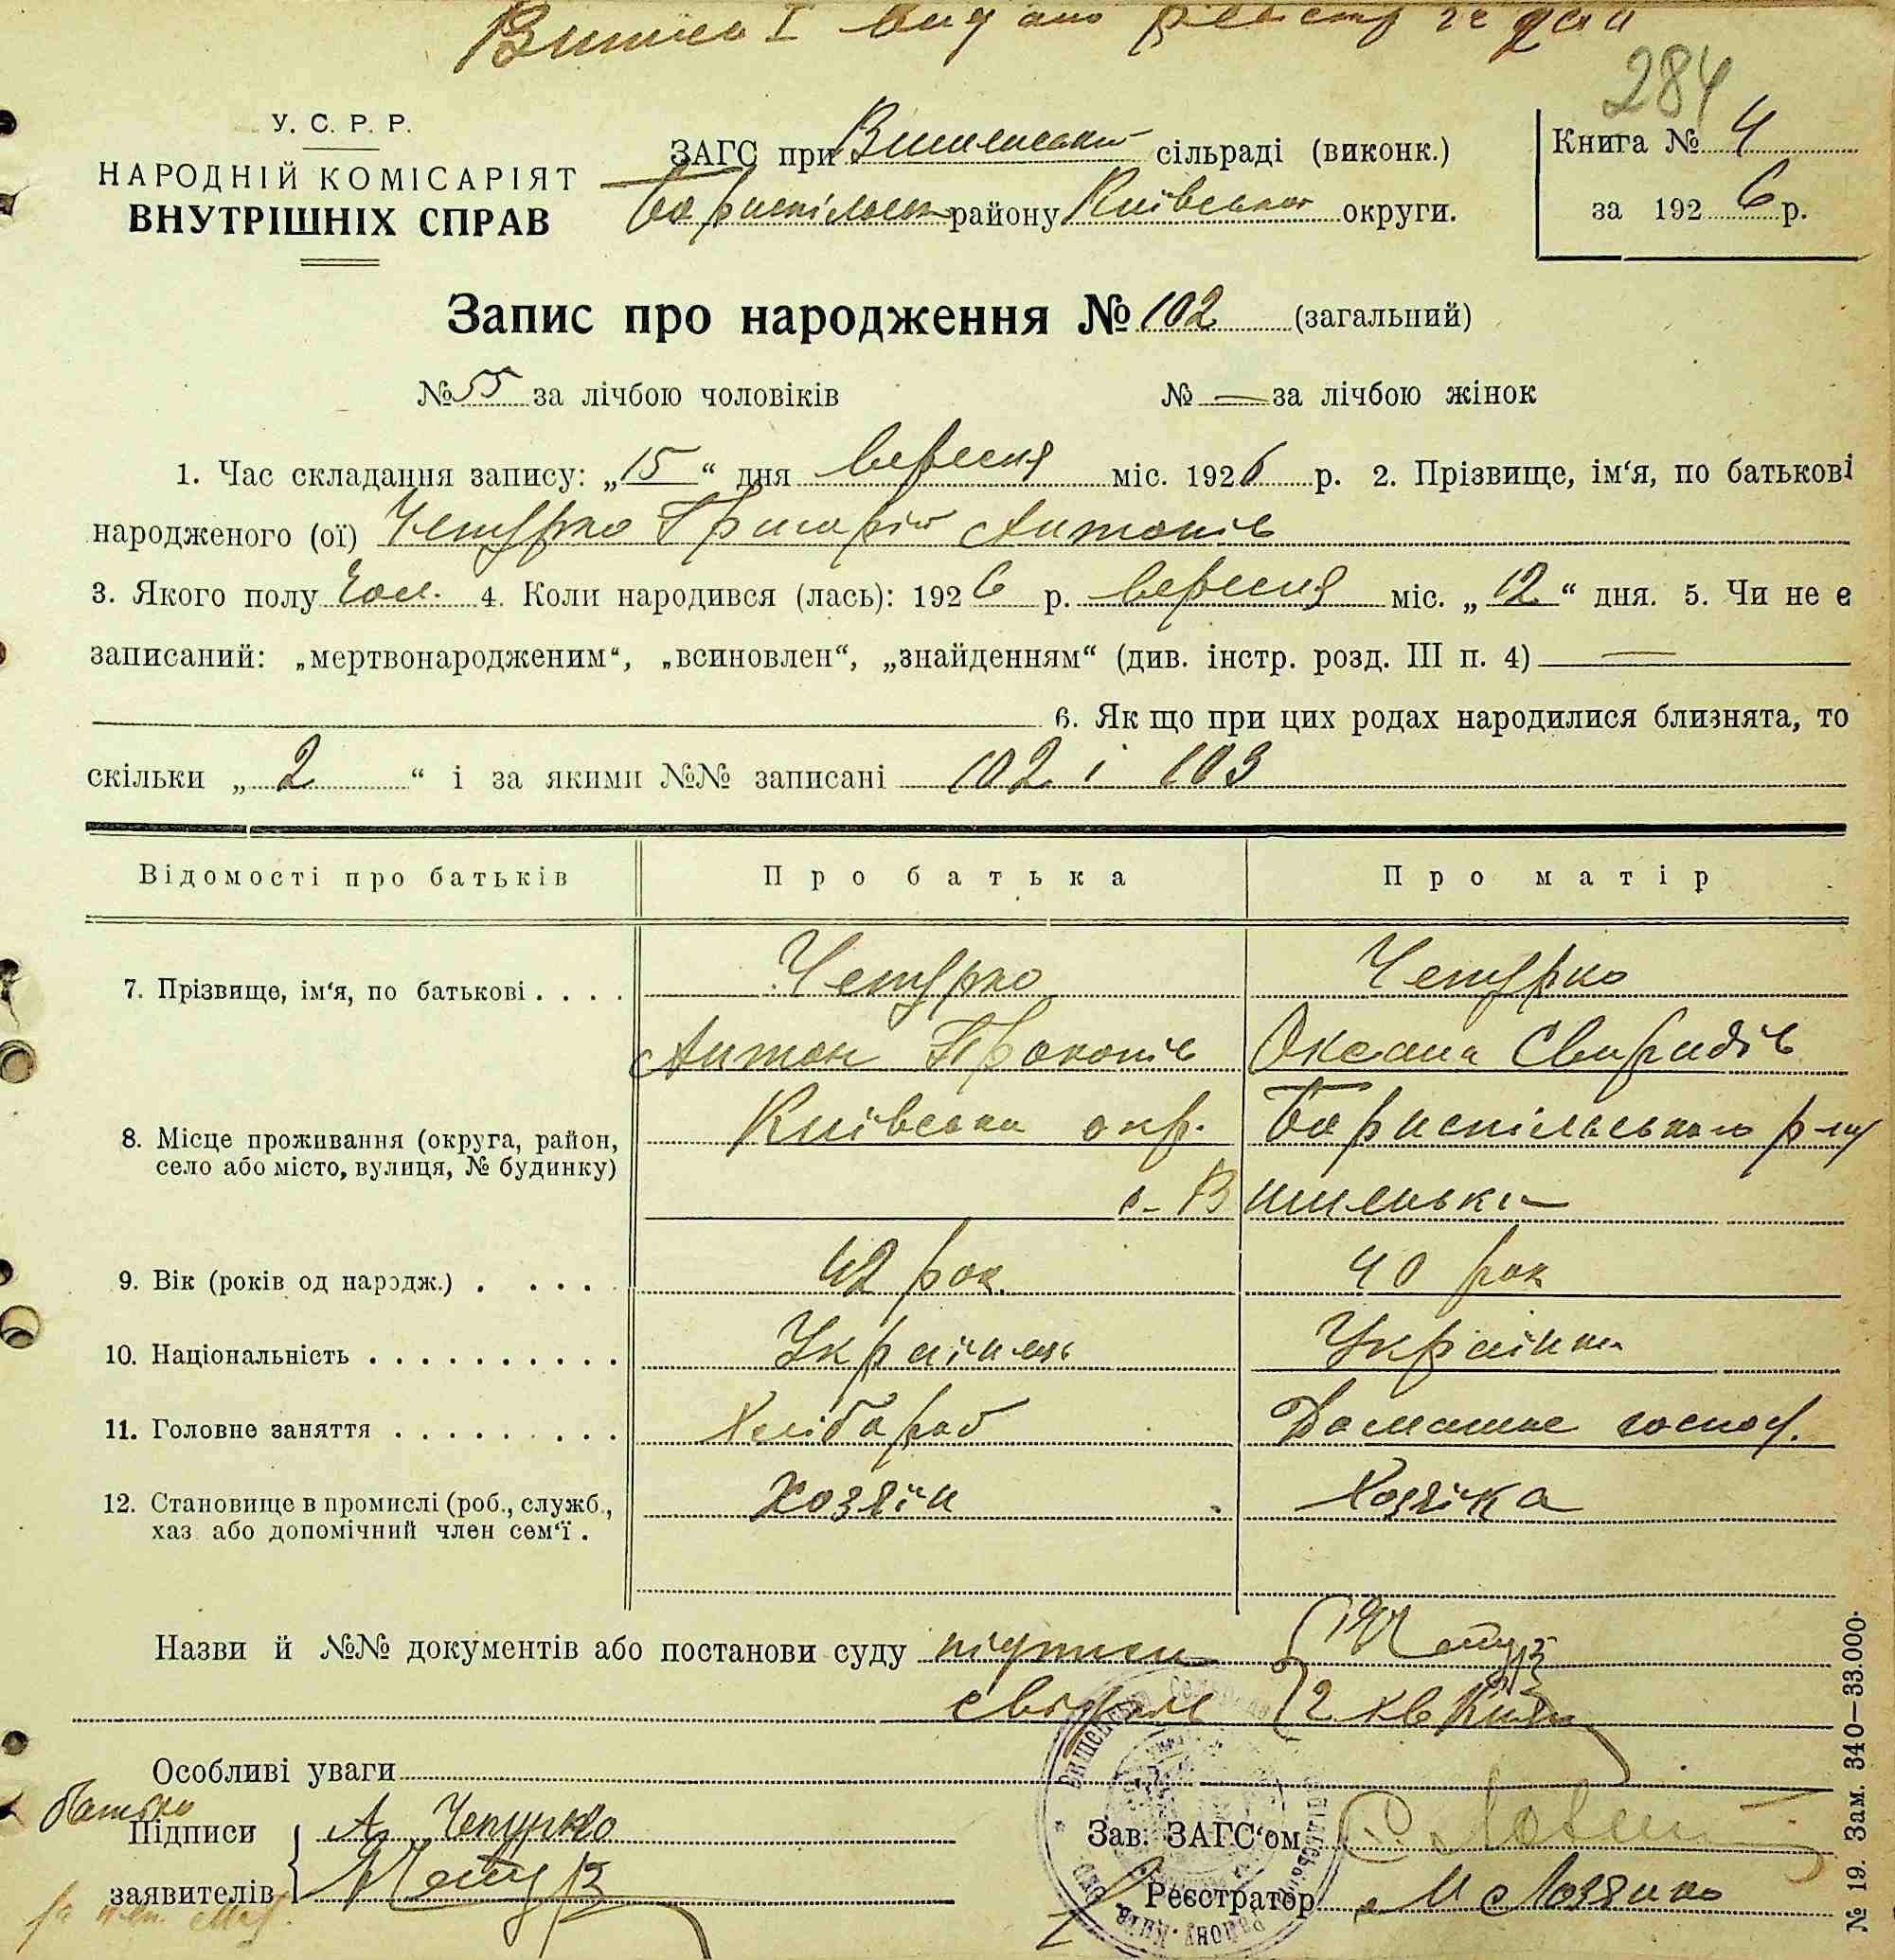 284
У. С. Р. Р.
НАРОДНІЙ КОМІСАРІЯТ
ВНУТРІШНІХ СПРАВ
ЗАГС при Вишенській сільраді (виконк.)
Бориспільськ району Київської округи.
Книга № 4
за 1926 р.
Запис про народження № 102 (загальний)
№ 55 за лічбою чоловіків № — за лічбою жінок
1. Час складання запису: „15“ дня вересня міс. 1926 р. 2. Прізвище, ім‘я, по батькові
народженого (ої) Чепурко Григорій Антонів
3. Якого полу Чол. 4. Коли народився (лась): 1926 р. вересня міс. „12“ дня. 5. Чи не е
записаний: „мертвонародженим“, „всиновлен“, „знайденням“ (див. інстр. розд. III п. 4) —
6. Як що при цих родах народилися близнята, то
скільки „2“ і за якими №№ записані 102 і 103
Відомості про батьків Про батька Про матір
7. Прізвище, ім‘я, по батькові . . . . Чепурко Чепурко
Антон Прокопів Оксана Свиридів
8. Місце проживання (округа, район, Київська окр. Бориспільського р-ну
село або місто, вулиця, № будинку)
с. Вишеньки
9. Вік (років од народж.) . . . . 42 рок. 40 рок
10. Національність . . . . . . . . . . Українець Українка
11. Головне заняття . . . . . . . . . Хлібороб Домашнє господ.
12. Становище в промислі (роб., служб., Хозяїн Хозяїка
хаз. або допомічний член сем‘ї .
Назви й №№ документів або постанови суду підписи
свідків
Особливі уваги
батько
Підписи А Чепурко Зав. ЗАГС‘ом
заявителів Реєстратор М Лозянко
№ 19. Зам. 340—33.000.